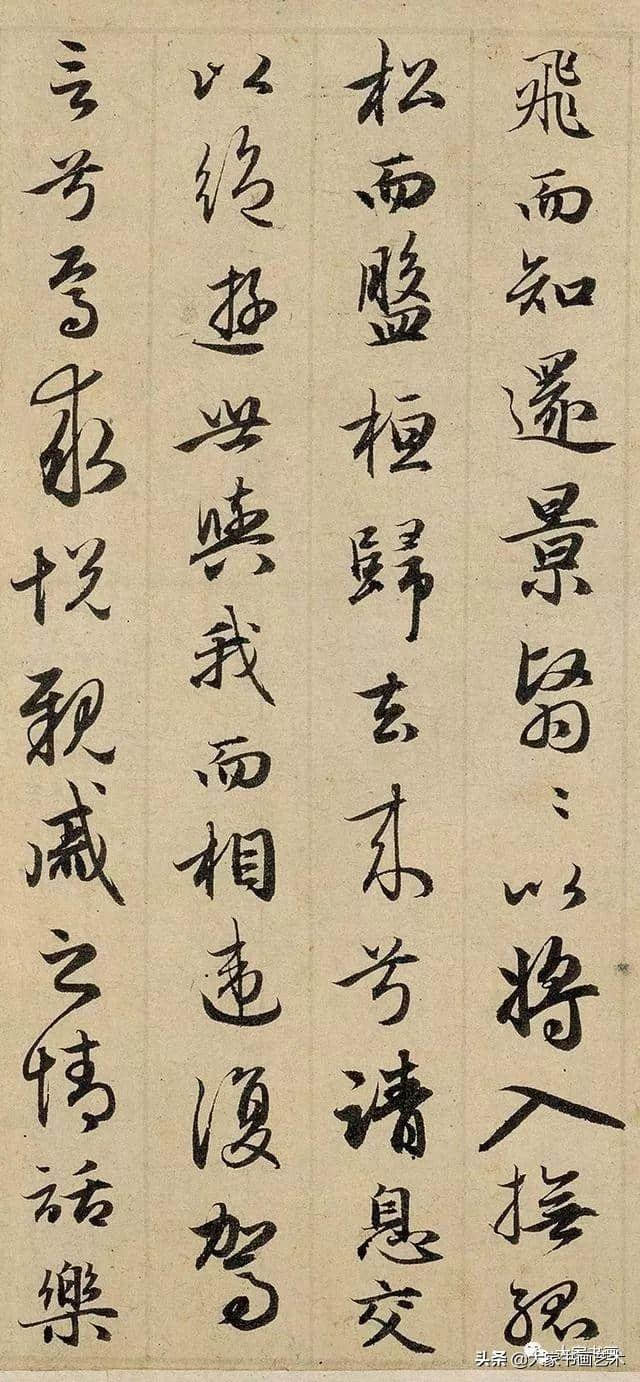 飛而知還景翳〻以將入撫孤
松而盤桓歸去来兮請息交
以絶遊世與我而相違復駕
言兮焉求悦親戚之情話樂
头条 @大家书画艺术